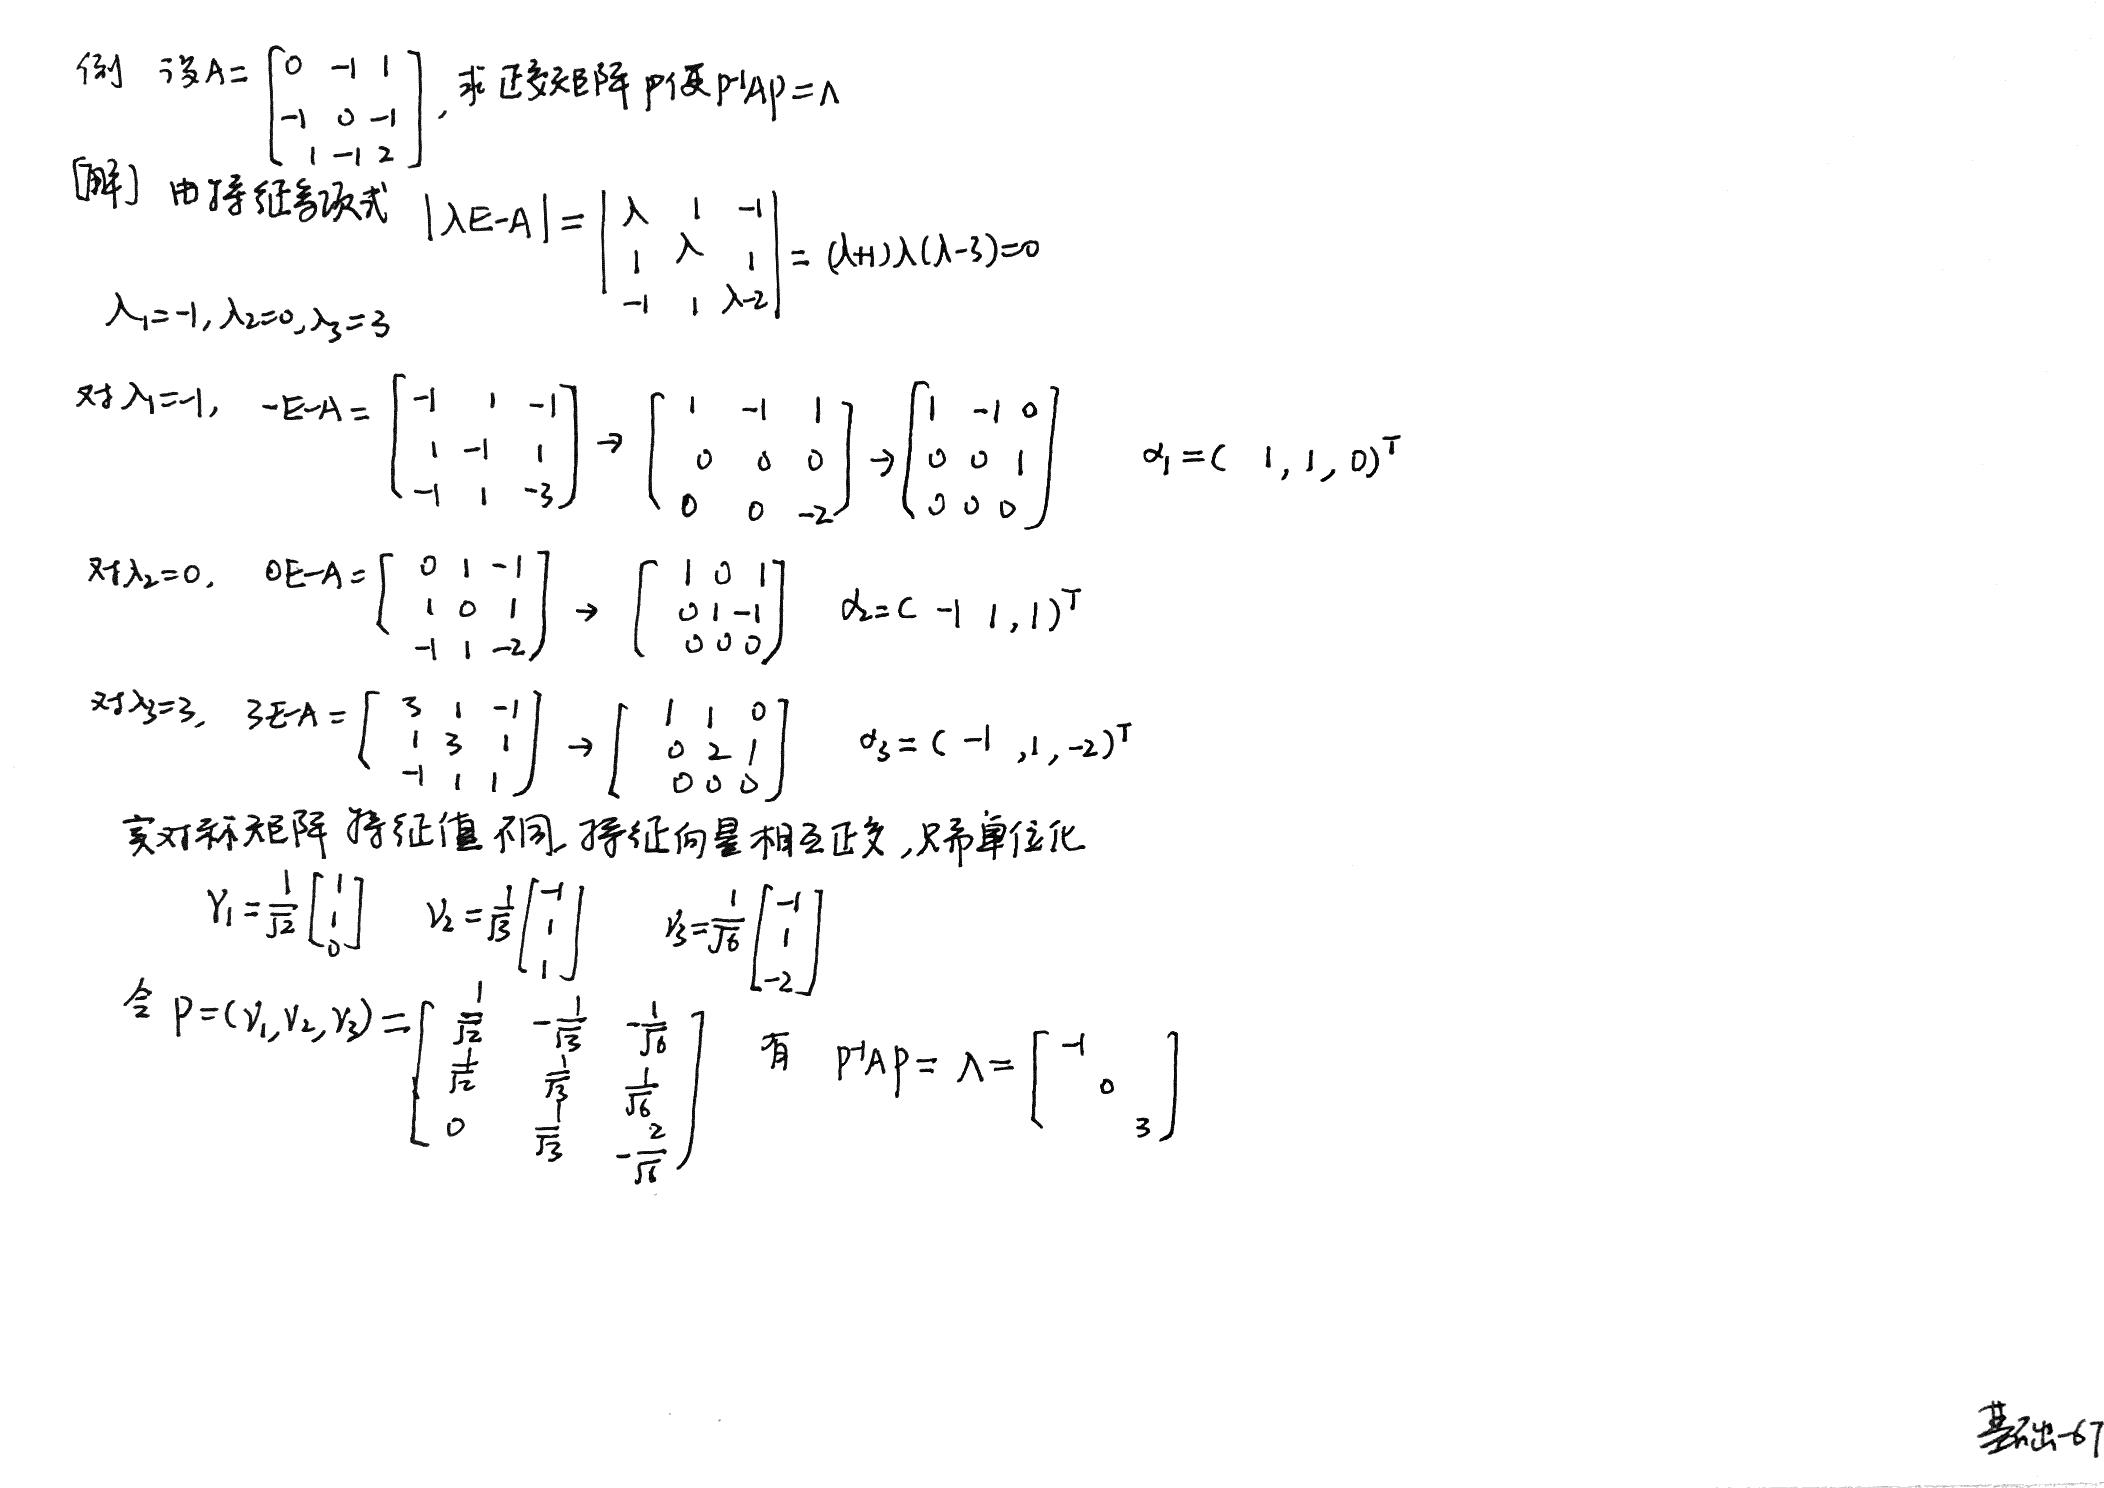 例 设A=[0 -1 1; -1 0 -1; 1 -1 2], 求正交矩阵P使P⁻¹AP=Λ
[解] 由特征多项式 |λE-A|=|λ 1 -1; 1 λ 1; -1 1 λ-2|=(λ+1)λ(λ-3)=0
λ₁=-1, λ₂=0, λ₃=3
对λ₁=-1, -E-A=[-1 1 -1; 1 -1 1; -1 1 -3]→[1 -1 1; 0 0 0; 0 0 -2]→[1 -1 0; 0 0 1; 0 0 0] α₁=( 1, 1, 0)ᵀ
对λ₂=0, 0E-A=[0 1 -1; 1 0 1; -1 1 -2]→[1 0 1; 0 1 -1; 0 0 0] α₂=( -1 1, 1)ᵀ
对λ₃=3, 3E-A=[3 1 -1; 1 3 1; -1 1 1]→[1 1 0; 0 2 1; 0 0 0] α₃=( -1 ,1, -2)ᵀ
实对称矩阵 特征值不同, 特征向量相互正交, 只需单位化
γ₁=1/√2[1; 1; 0] γ₂=1/√3[-1; 1; 1] γ₃=1/√6[-1; 1; -2]
令 P=(γ₁,γ₂,γ₃)=[1/√2 -1/√3 -1/√6; 1/√2 1/√3 1/√6; 0 1/√3 -2/√6] 有 P⁻¹AP=Λ=[-1 0 3]
基础-67